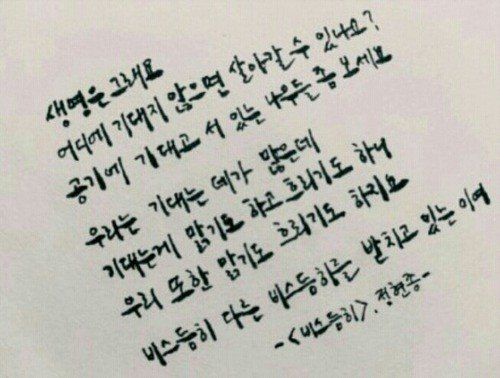 생명은 그래요
어디에 기대지 않으면 살아갈 수 있나요?
공기에 기대고 서 있는 나무들을 좀 보세요
우리는 기대는 데가 많은데
기대는게 맑기도 하고 흐리기도 하니
우리 또한 맑기도 흐리기도 하지요
비스듬히 다른 비스듬히를 받치고 있는 이여
-<비스듬히>. 정현종-